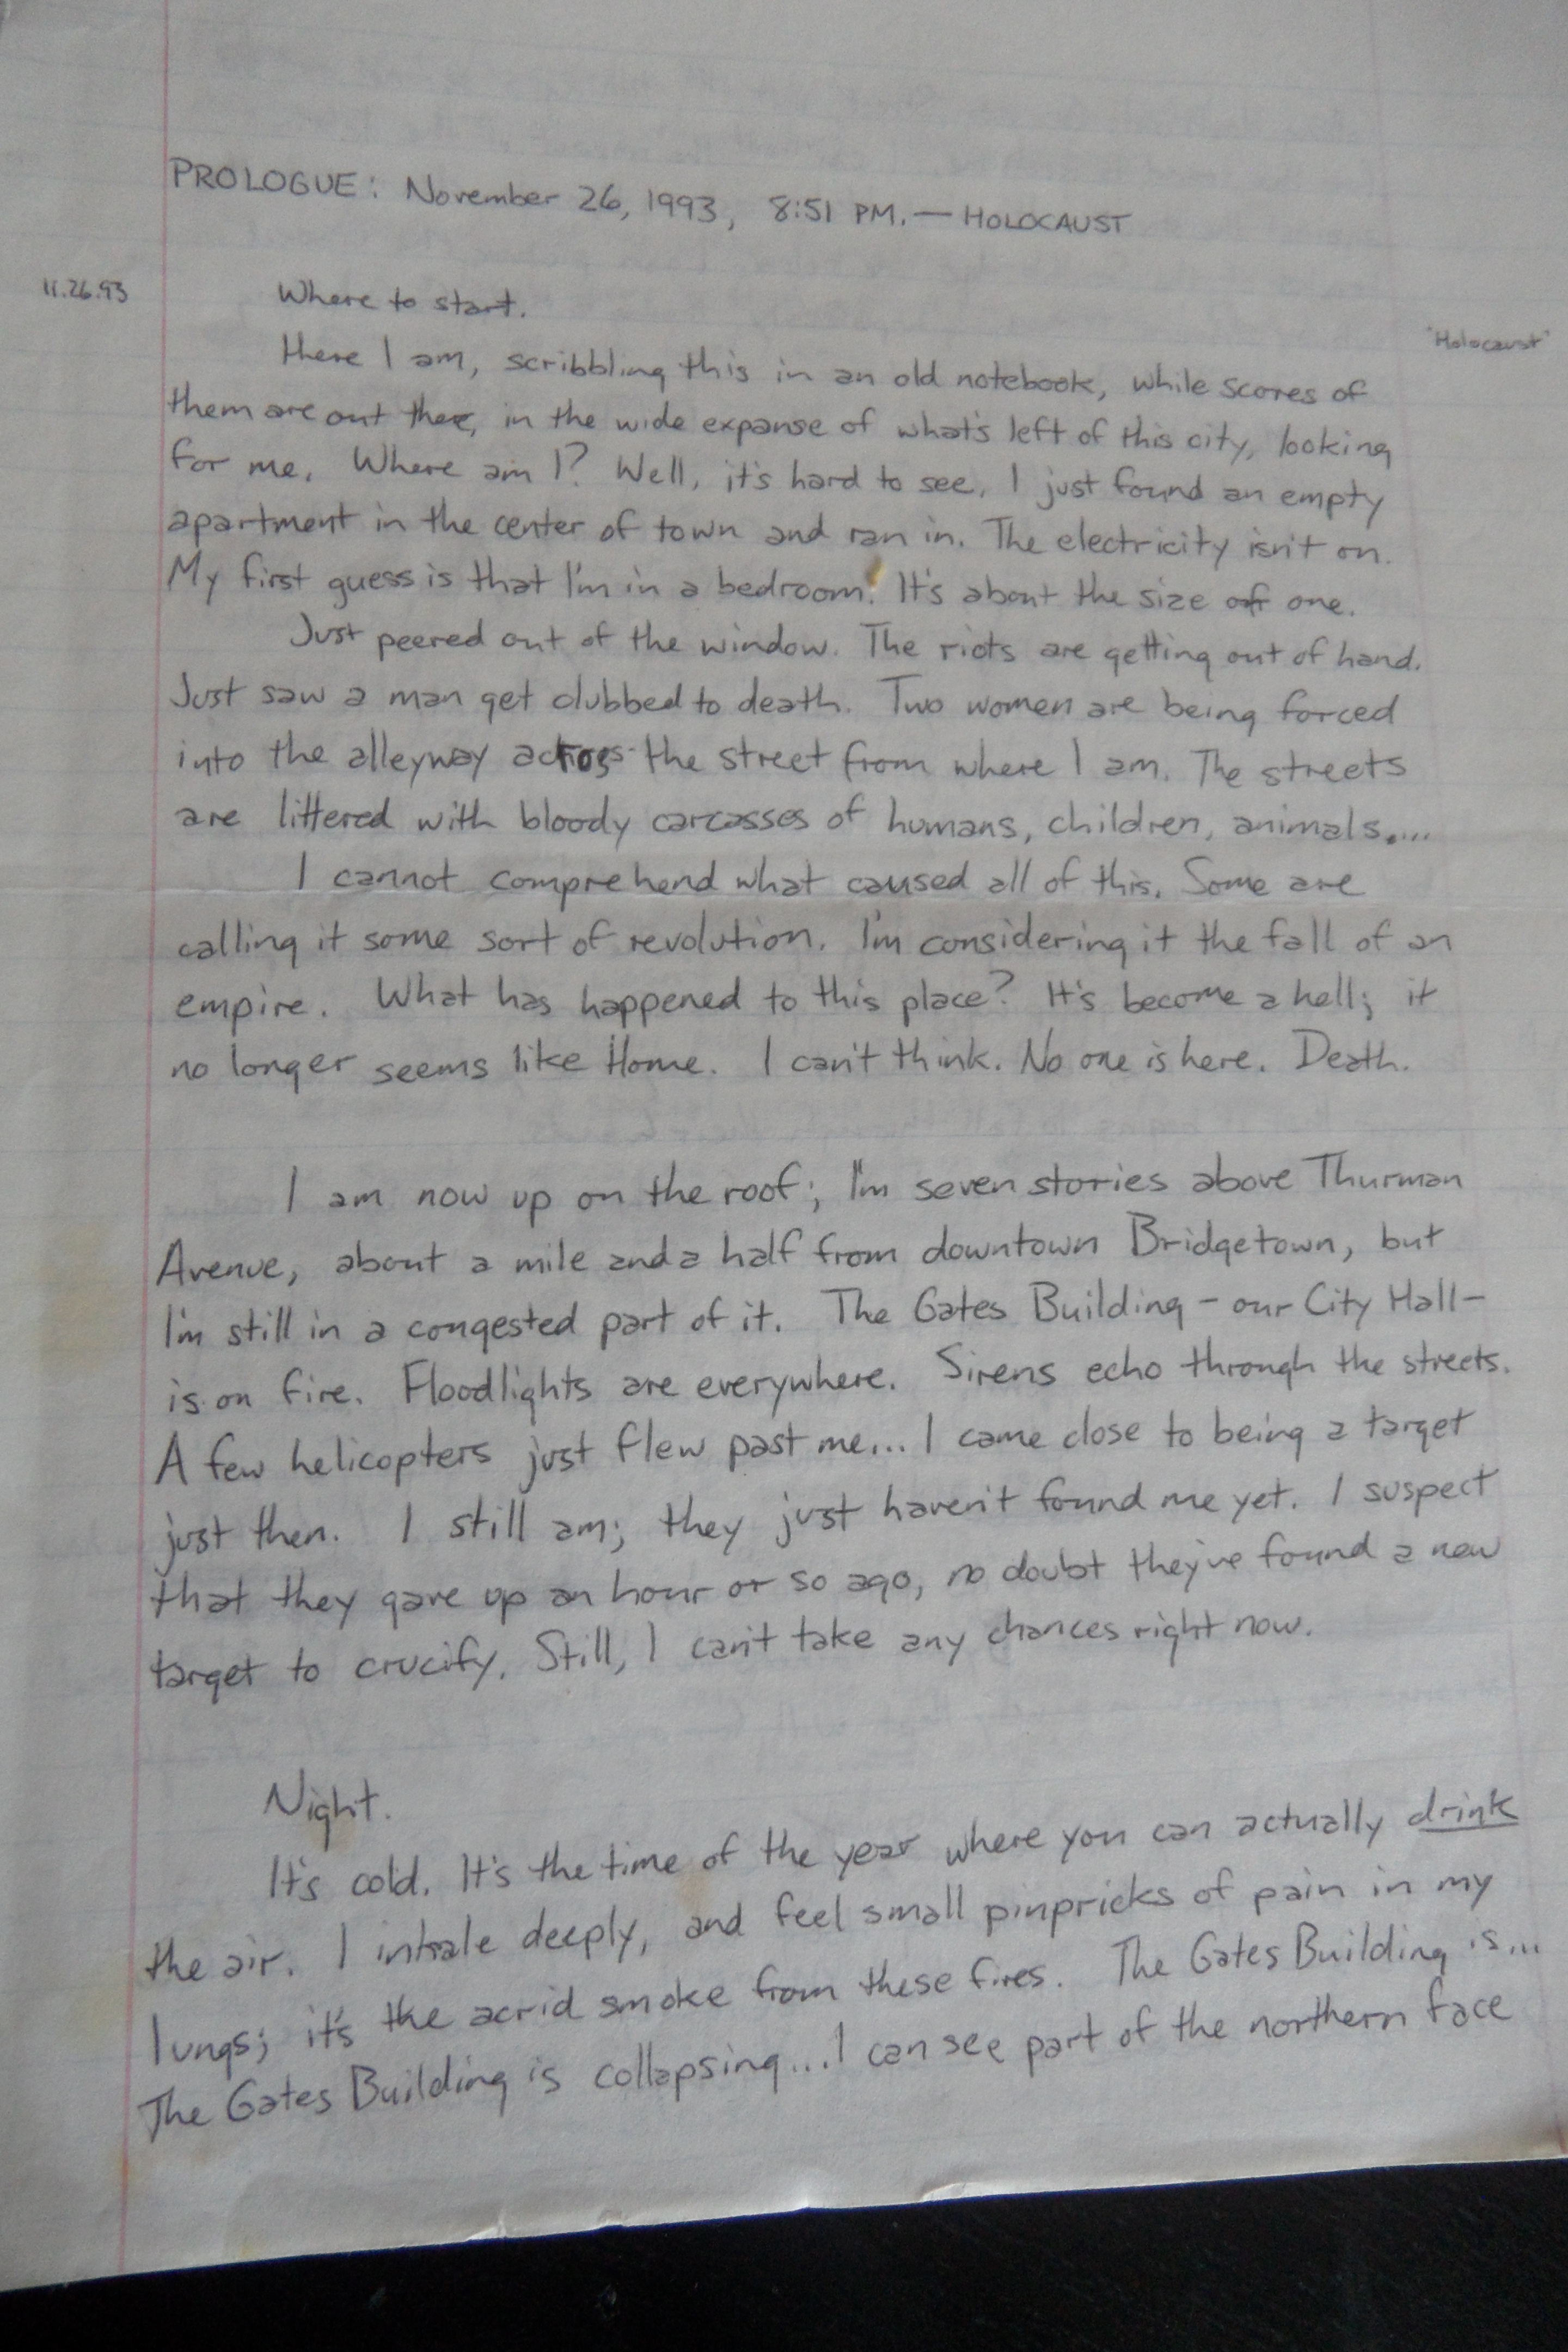 PROLOGUE: November 26, 1993, 8:51 PM. — HOLOCAUST
11.26.93
Where to start.
"Holocaust"
Here I am, scribbling this in an old notebook, while scores of
them are out there, in the wide expanse of what's left of this city, looking
for me. Where am I? Well, it's hard to see, I just found an empty
apartment in the center of town and ran in. The electricity isn't on.
My first guess is that I'm in a bedroom. It's about the size of one.
Just peered out of the window. The riots are getting out of hand.
Just saw a man get clubbed to death. Two women are being forced
into the alleyway across the street from where I am. The streets
are littered with bloody carcasses of humans, children, animals....
I cannot comprehend what caused all of this. Some are
calling it some sort of revolution. I'm considering it the fall of an
empire. What has happened to this place? It's become a hell; it
no longer seems like Home. I can't think. No one is here. Death.
I am now up on the roof; I'm seven stories above Thurman
Avenue, about a mile and a half from downtown Bridgetown, but
I'm still in a congested part of it. The Gates Building - our City Hall -
is on fire. Floodlights are everywhere. Sirens echo through the streets.
A few helicopters just flew past me... I came close to being a target
just then. I still am; they just haven't found me yet. I suspect
that they gave up an hour or so ago, no doubt they've found a new
target to crucify. Still, I can't take any chances right now.
Night.
It's cold. It's the time of the year where you can actually drink
the air. I inhale deeply, and feel small pinpricks of pain in my
lungs; it's the acrid smoke from these fires. The Gates Building is...
The Gates Building is collapsing... I can see part of the northern face